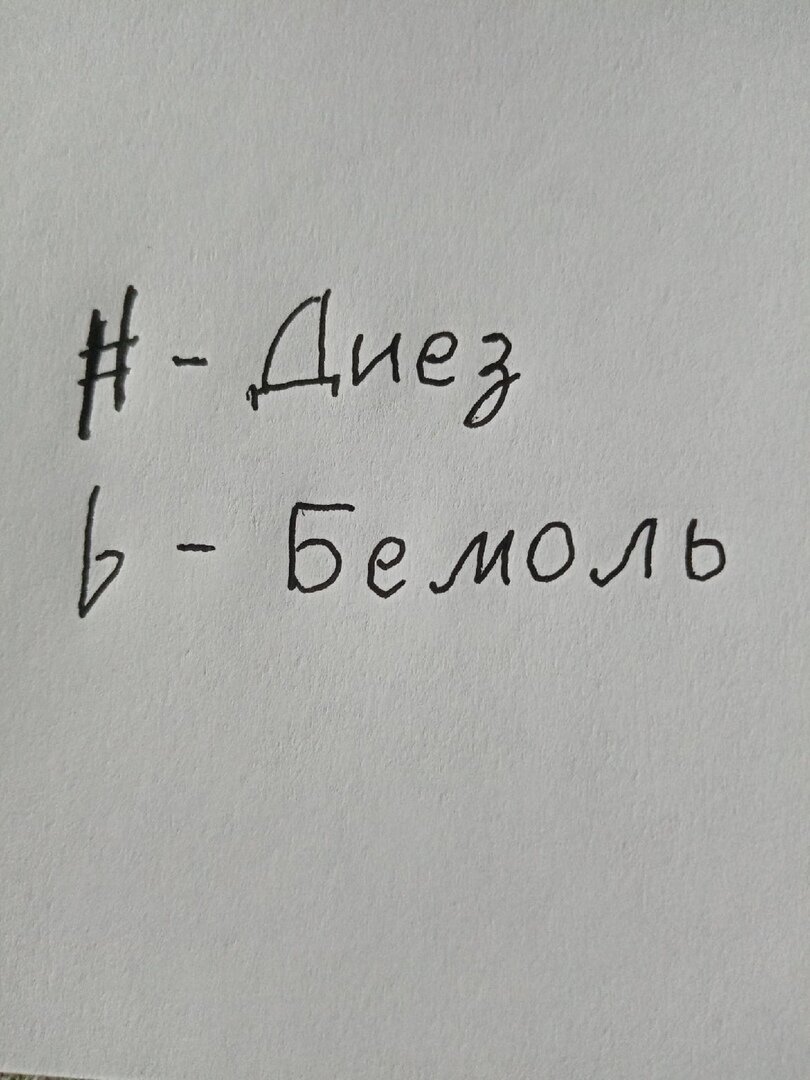 # - Диез
b - Бемоль